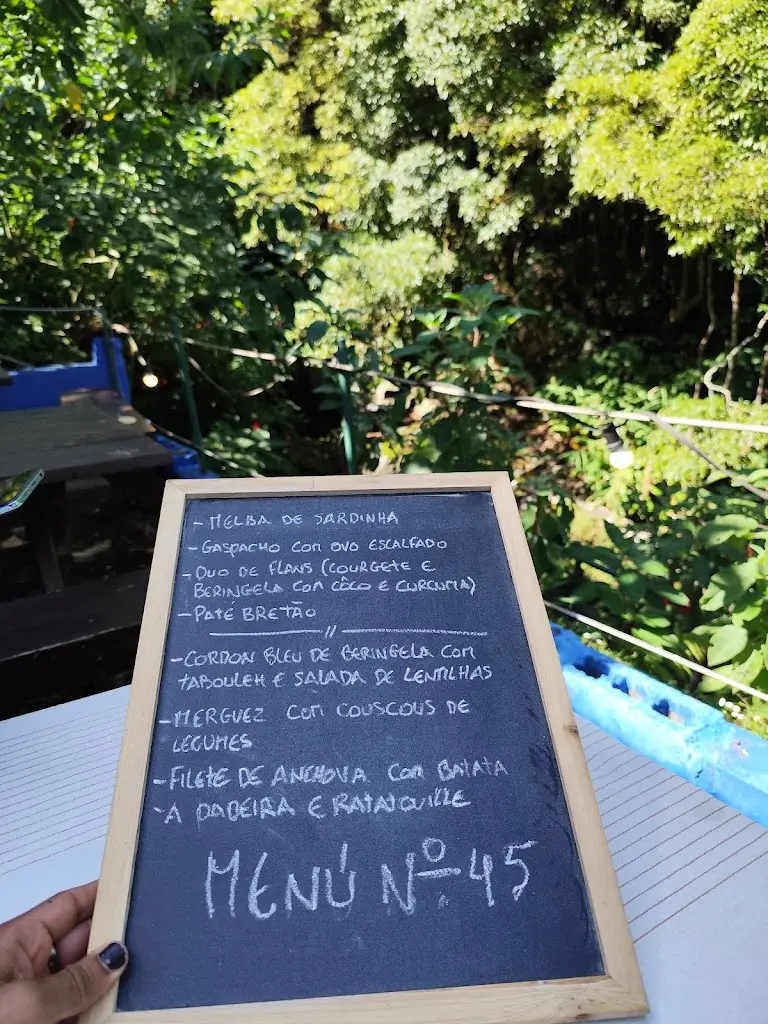 - MELBA DE SARDINHA
- GASPACHO COM OVO ESCALFADO
- DUO DE FLANS (COURGETE E
BERINGELA COM CÔCO E CURCUMA)
- PATÉ BRETÃO
//
- CORDON BLEU DE BERINGELA COM
TABOULEH E SALADA DE LENTILHAS
- MERGUEZ COM COUSCOUS DE
LEGUMES
- FILETE DE ANCHOVA COM BATATA
- A PADEIRA E RATATOUILLE
MENÚ Nº 45